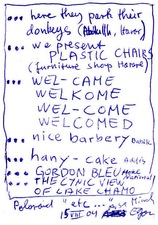 ... here they park their
donkeys (Abdulla, Harar)
... we present
PLASTIC CHAIRS
(furniture shop Harare)
... WEL-CAME
WELKOME
WEL-COME
WELCOMED
... nice barbery
... hany-cake Addis
... GORDON BLEU
... THE CYNIC VIEW
OF LAKE CHAMO
Polaroid "etc..."
15 VIII 04